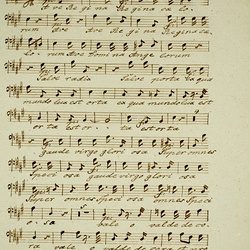 Ave Regina caelo-
rum Ave Ave Regina Regina cae-
lorum Ave Domina Angelorum
Salve radix Salve porta ex qua
mundo lux est orta ex qua mundo lux est
orta est or - ta est orta
gaude virgo gloriosa Super omnes
speciosa gaude virgo gloriosa
Super omnes speciosa omnes speci
osa vale o valde deco-
ra vale o valde